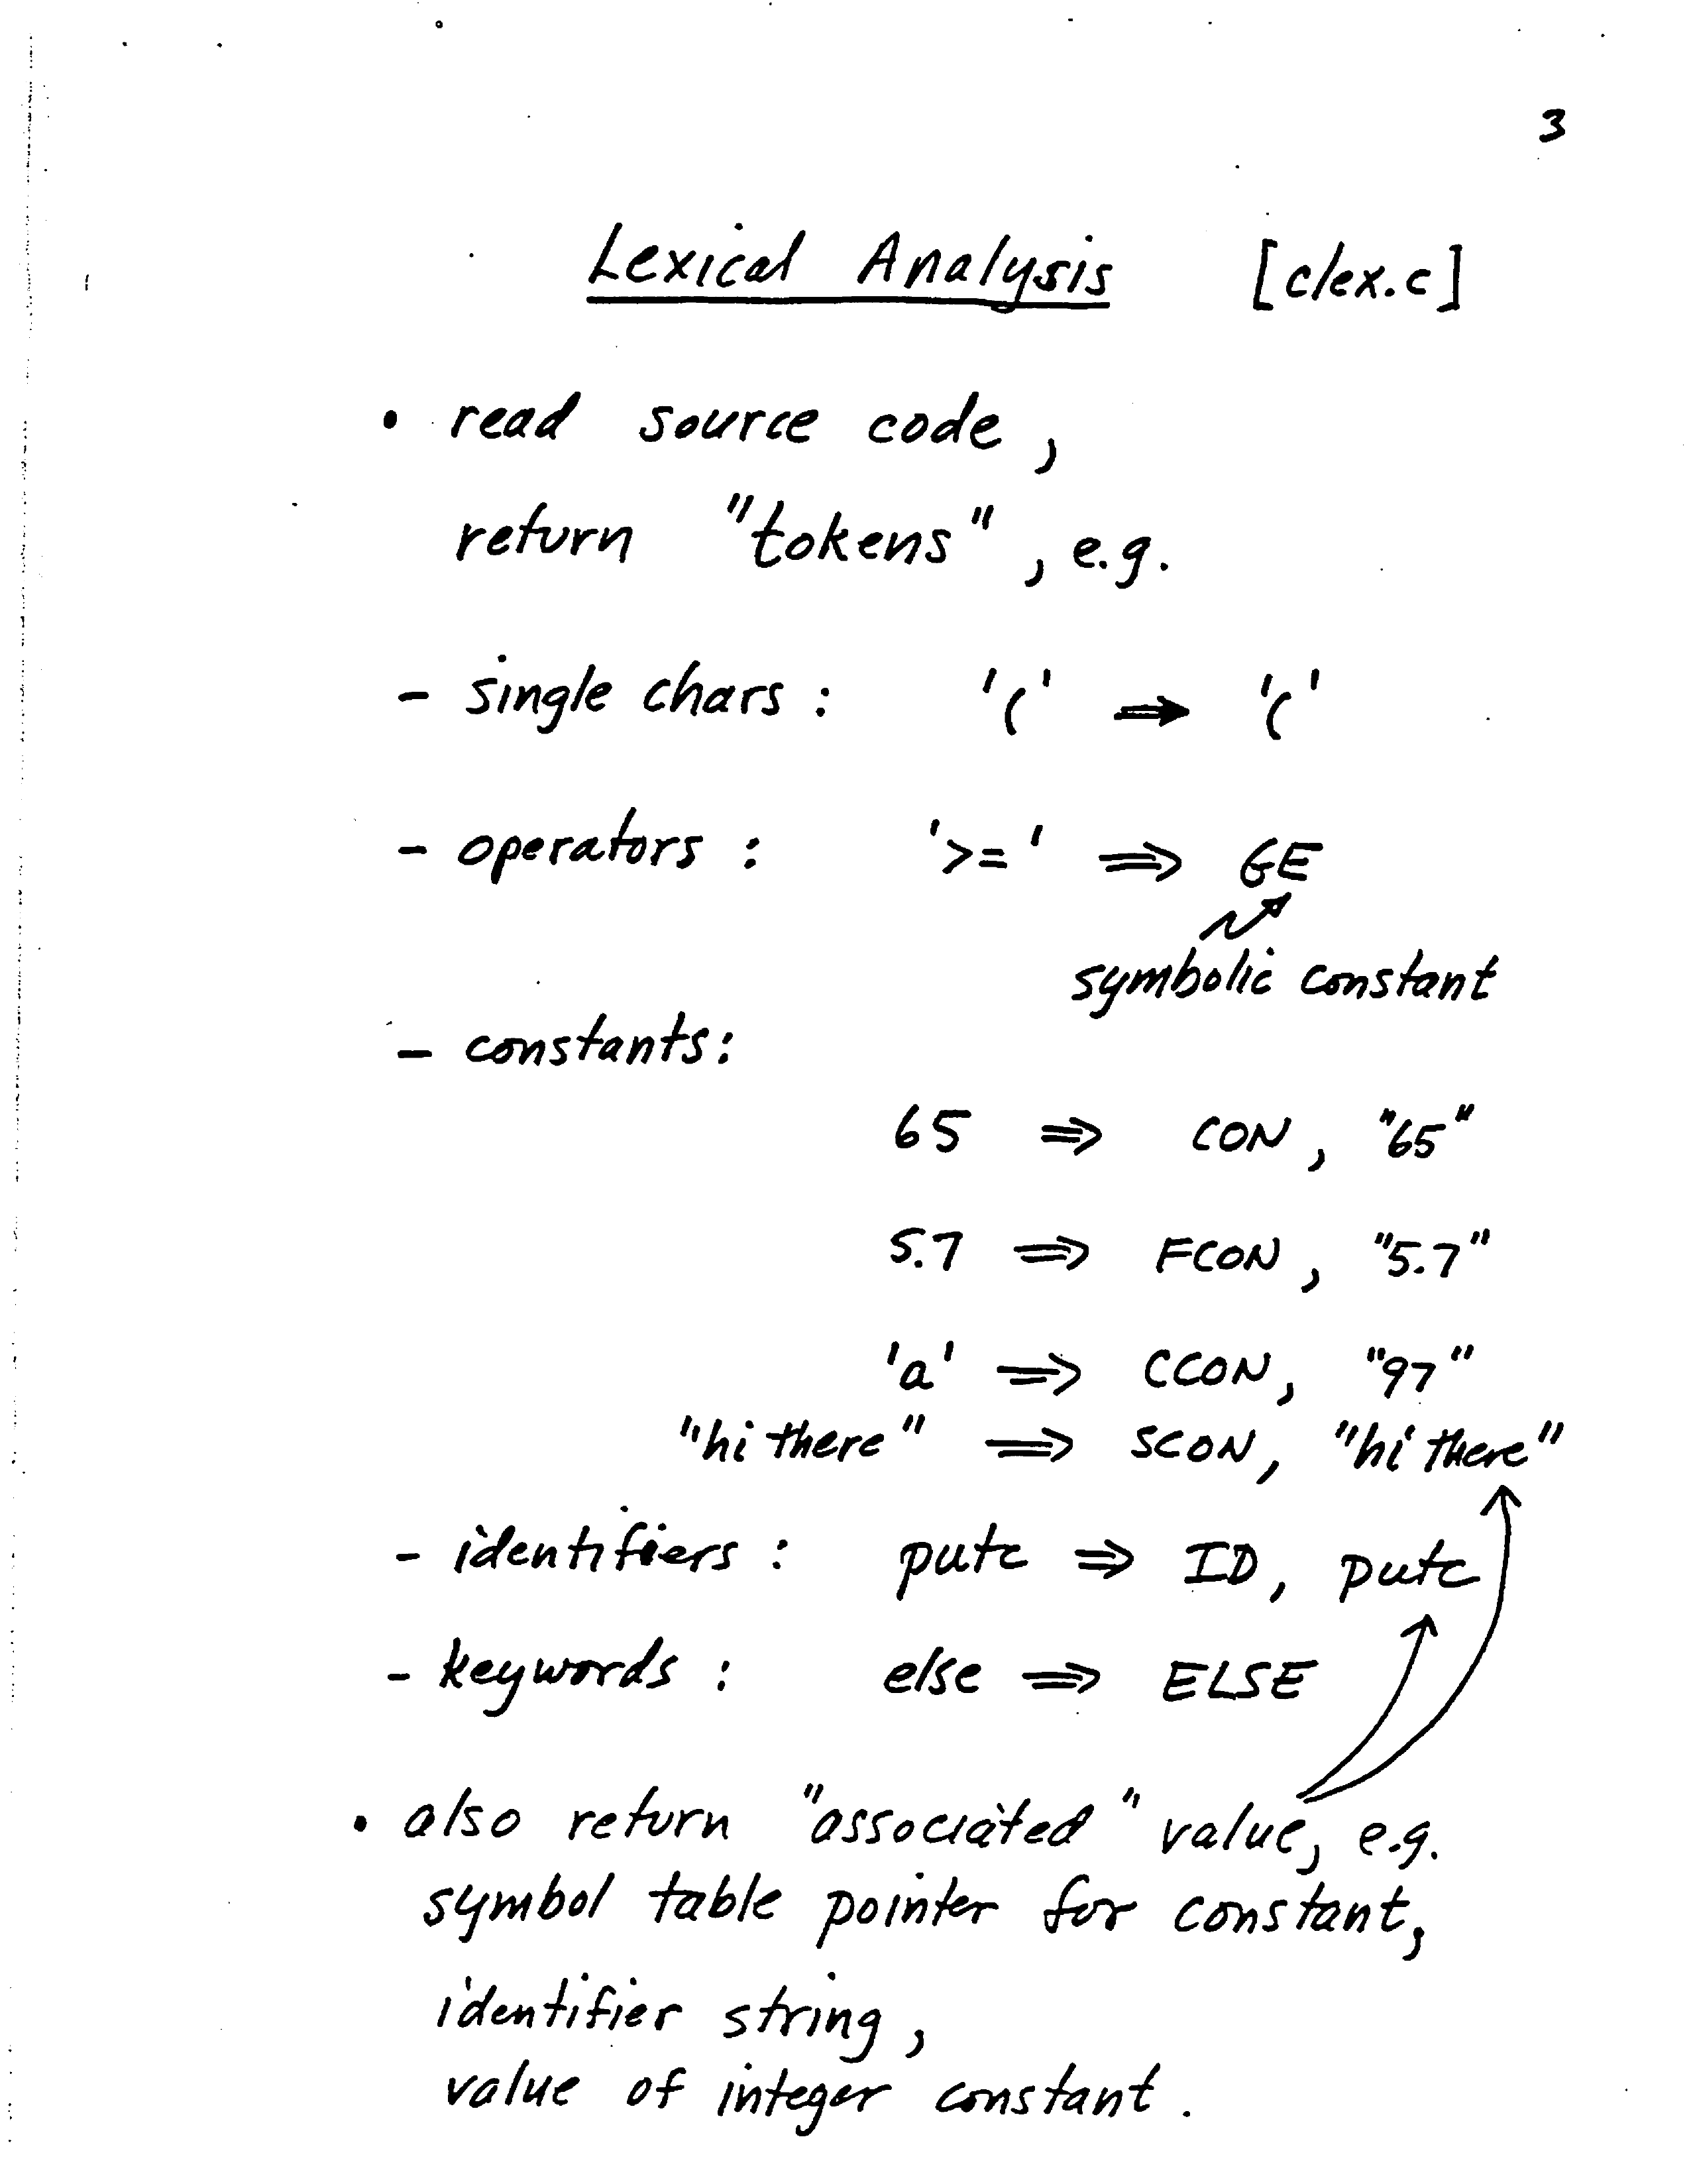 3
Lexical Analysis [clex.c]
• read source code,
return "tokens", e.g.
- single chars : '(' ⇒ '('
- operators : '>=' ⇒ GE
symbolic constant
- constants:
65 ⇒ CON, "65"
5.7 ⇒ FCON, "5.7"
'a' ⇒ CCON, "97"
"hi there" ⇒ SCON, "hi there"
- identifiers : putc ⇒ ID, putc
- keywords : else ⇒ ELSE
• also return "associated" value, e.g.
symbol table pointer for constant,
identifier string,
value of integer constant.